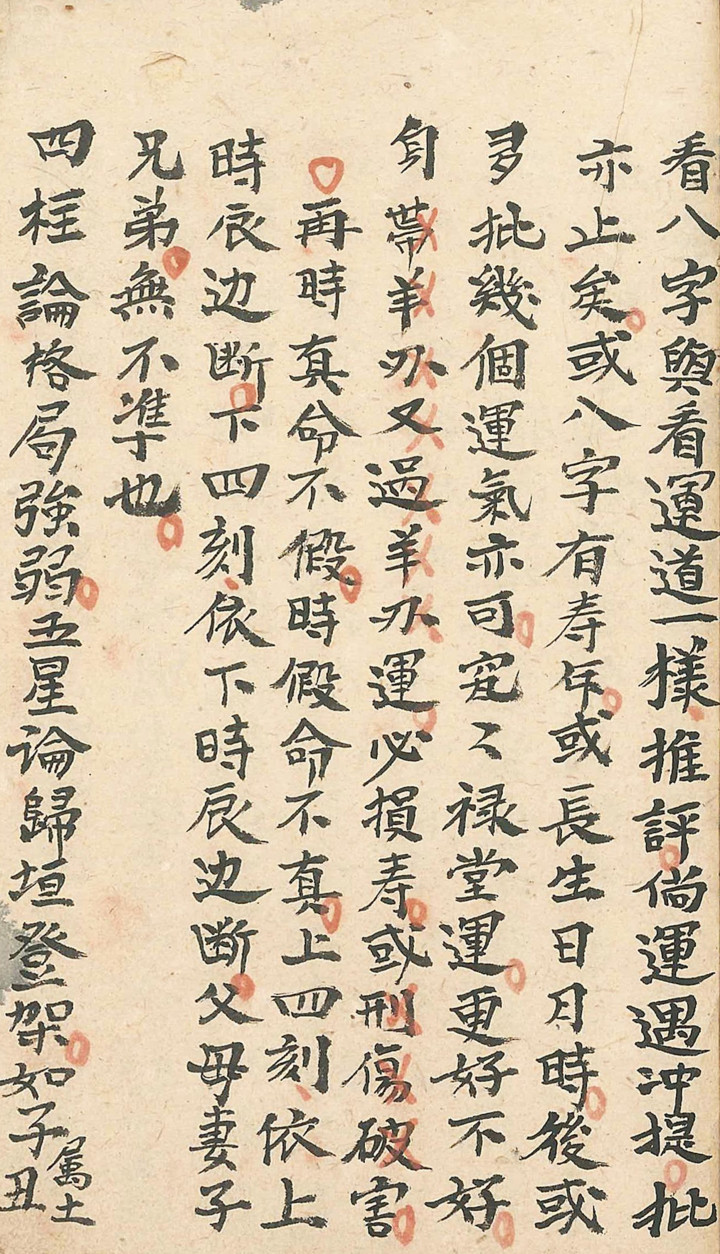 看八字與看運道一樣推評倘運遇冲提批
亦止矣或八字有寿斤或長生日月時後或
多批幾個運氣亦可究〻禄堂運更好不好
自帶羊刃又過羊刃運必損寿或刑傷破害
再時真命不假時假命不真上四刻依上
時辰边断下四刻依下時辰边断父母妻子
兄弟無不準也
四柱論格局強弱五星論歸垣登架如子丑属土